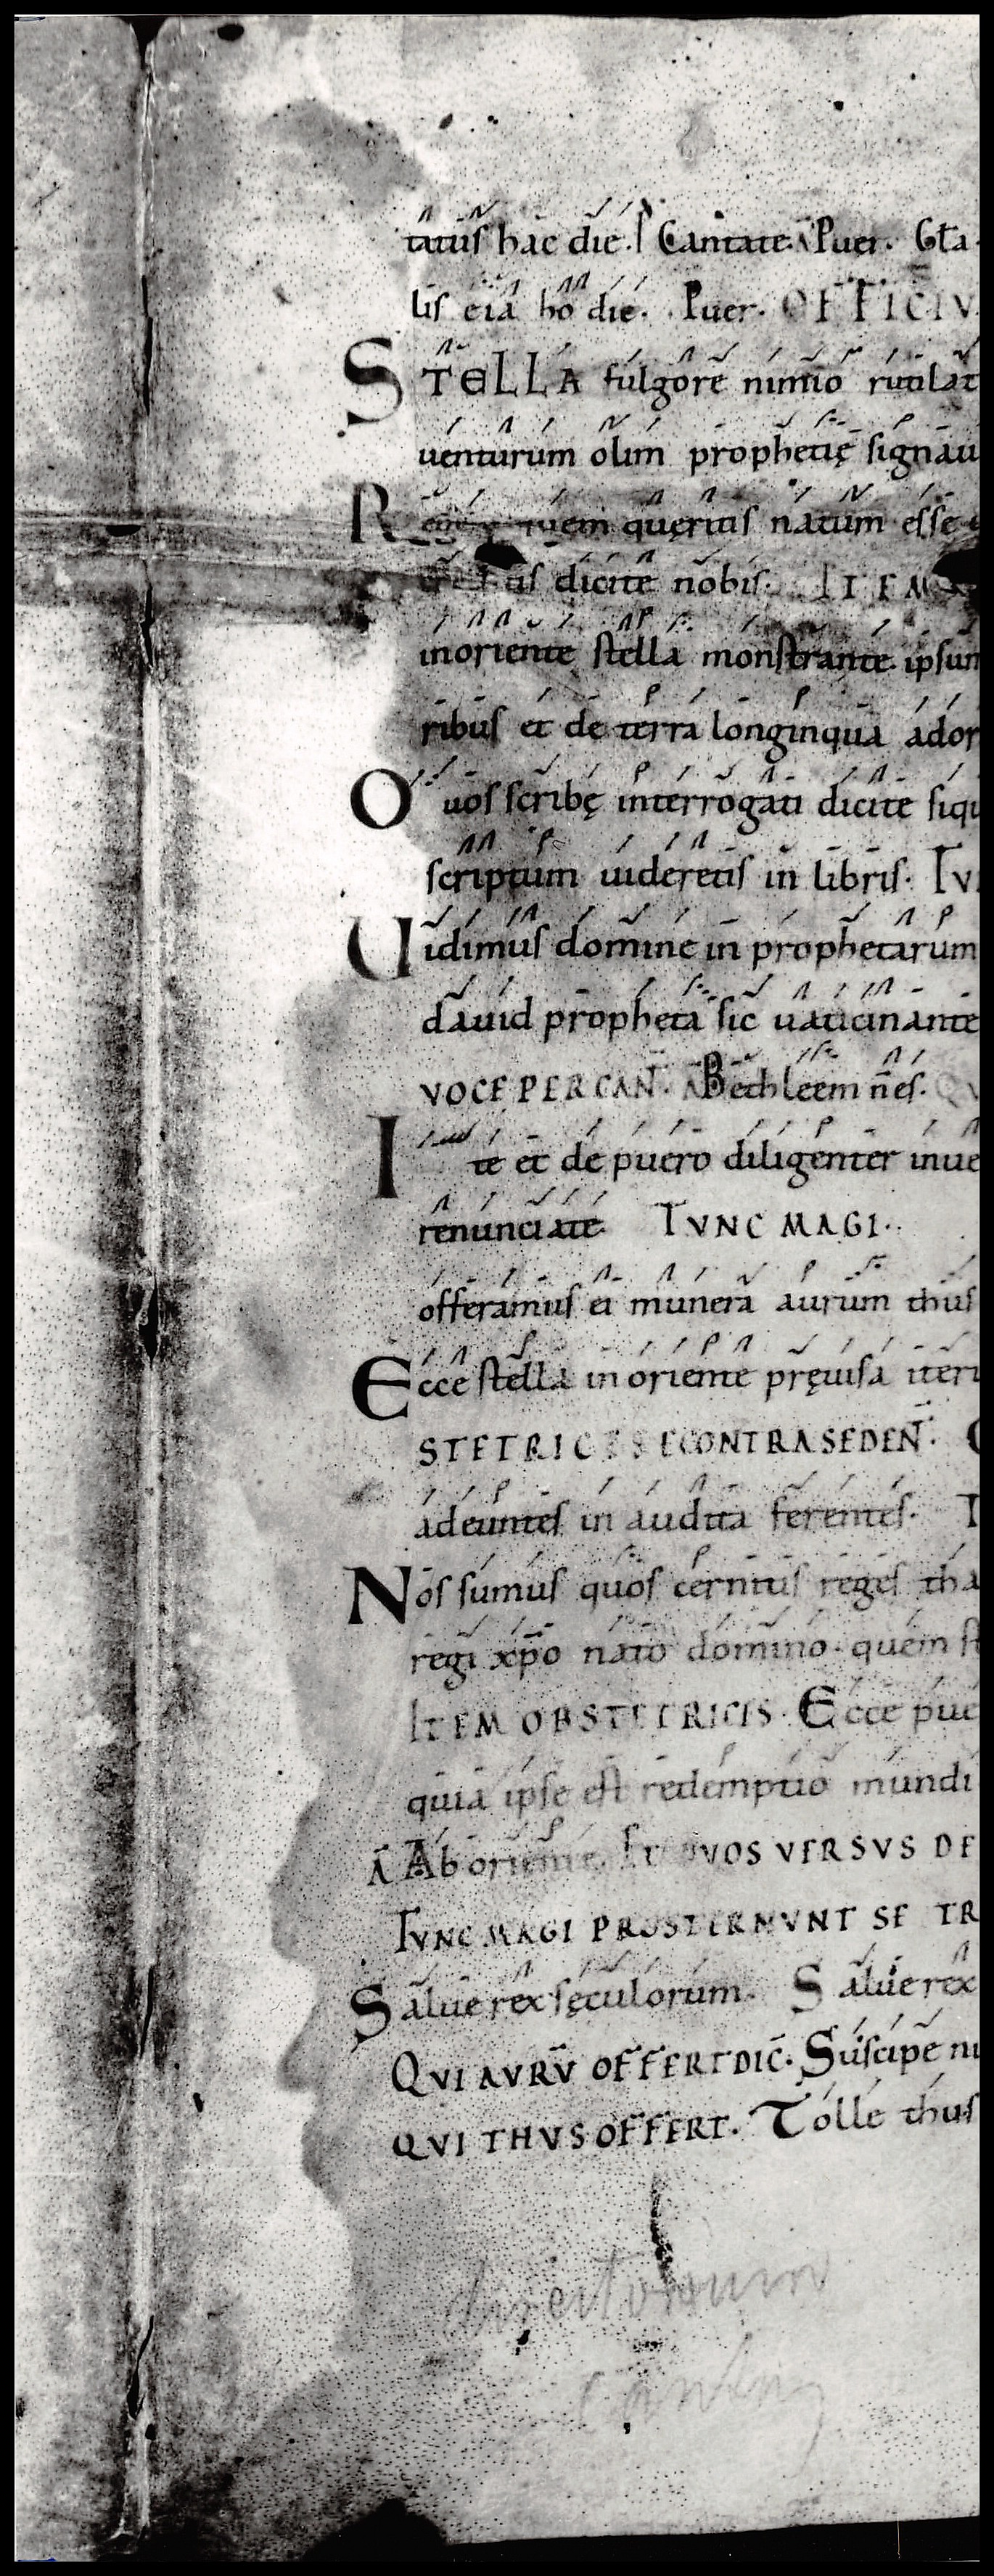 tuus hac die. Cantate. Puer. Gla
lis eia hodie. Puer. OFFICIV
STELLA fulgore nimio rutilat
uenturum olim prophetię signau
quem queritis natum esse
dicite nobis. ITEM
inoriente stella monstrante. ipsum
ribus et de terra longinqua ador
O uos scribę interrogati dicite siqu
scriptum uideretis in libris. Tv
Uidimus domine in prophetarum
dauid propheta sic uaticinante
VOCE PER CAN̄. Ā Bethleem n̄ es.
Ite et de puero diligenter inue
renunciate. TVNC MAGI.
offeramus ei munera aurum thus
Ecce stella inoriente pręuisa iteru
STETRICES ECONTRA SEDEN̄.
adeuntes in audita ferentes. I
Nos sumus quos cernitis reges tha
regi xp̄o nato domino. quem st
ITEM OBSTETRICIS. Ecce pue
quia ipse est redemptio mundi
Ā Ab oriente. VOS VERSVS DE
TVNC MAGI PROSTERNVNT SE TR
Salue rex sęculorum. Salue rex
QVI AVRV̄ OFFERT DIC̄. Suscipe nu
QVI THVS OFFERT. Tolle thus